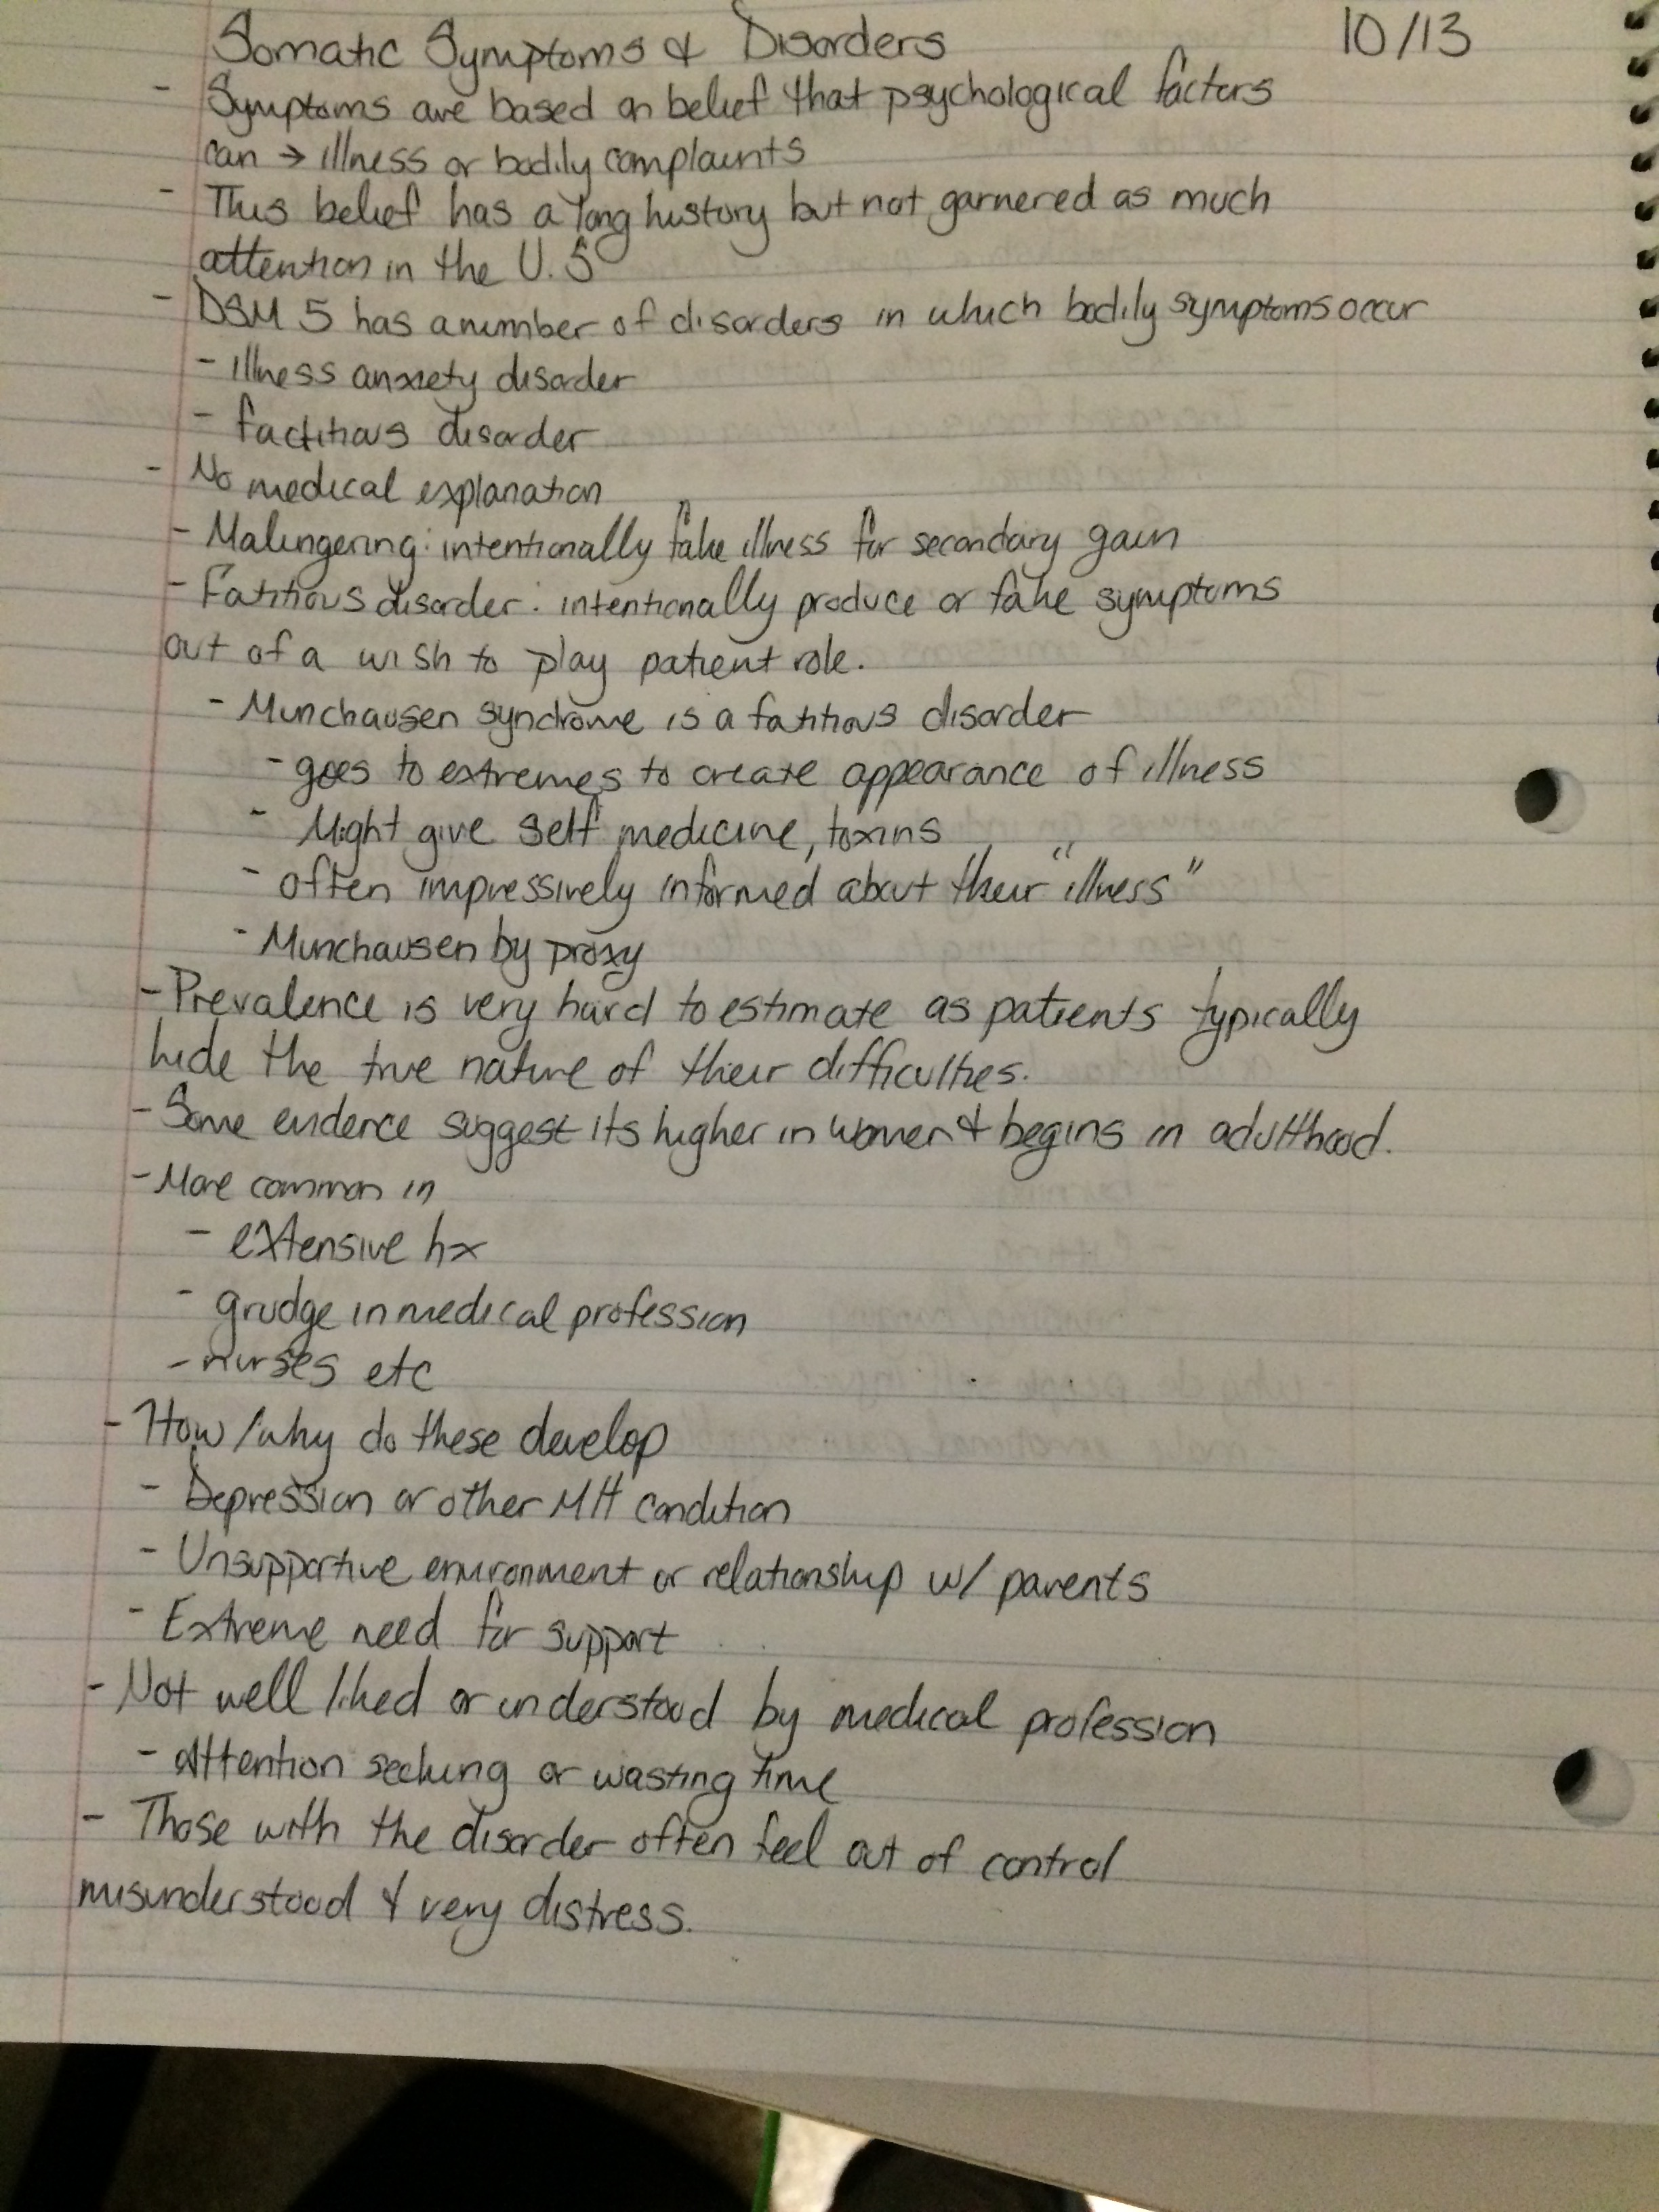 Somatic Symptoms & Disorders 10/13
- Symptoms are based on belief that psychological factors
can → illness or bodily complaints
- This belief has a long history but not garnered as much
attention in the U.S
- DSM 5 has a number of disorders in which bodily symptoms occur
- illness anxiety disorder
- factitious disorder
- No medical explanation
- Malingering: intentionally fake illness for secondary gain
- Fatitious disorder: intentionally produce or fake symptoms
out of a wish to play patient role.
- Munchausen syndrome is a fatitious disorder
- goes to extremes to create appearance of illness
- Might give self medicine, toxins
- often impressively informed about their "illness"
- Munchausen by proxy
- Prevalence is very hard to estimate as patients typically
hide the true nature of their difficulties.
- Some evidence suggest its higher in women & begins in adulthood.
- More common in
- extensive hx
- grudge in medical profession
- nurses etc
- How/why do these develop
- Depression or other MH condition
- Unsupportive environment or relationship w/ parents
- Extreme need for support
- Not well liked or understood by medical profession
- attention seeking or wasting time
- Those with the disorder often feel out of control
misunderstood & very distress.